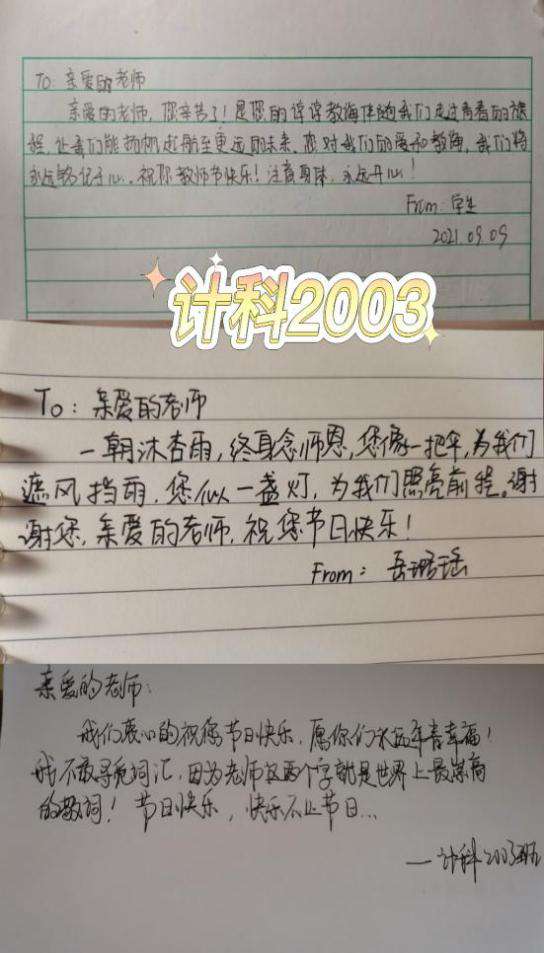 To: 亲爱的老师
亲爱的老师，您辛苦了！是您的谆谆教诲伴随我们走过青春的旅
程，让我们能扬帆起航至更远的未来，您对我们的爱和教诲，我们将
永远铭记于心。祝你教师节快乐！注意身体，永远开心！
From: 学生
2021.09.09
计科2003
To: 亲爱的老师
一朝沐杏雨，终身念师恩，您像一把伞，为我们
遮风挡雨，您似一盏灯，为我们照亮前程。谢
谢您，亲爱的老师，祝您节日快乐！
From: 岳瑶
亲爱的老师：
我们衷心的祝您节日快乐，愿你们永远年青幸福！
我不敢寻觅词汇，因为老师这两个字就是世界上最崇高
的敬词！节日快乐，快乐不止节日...
—计科2003班